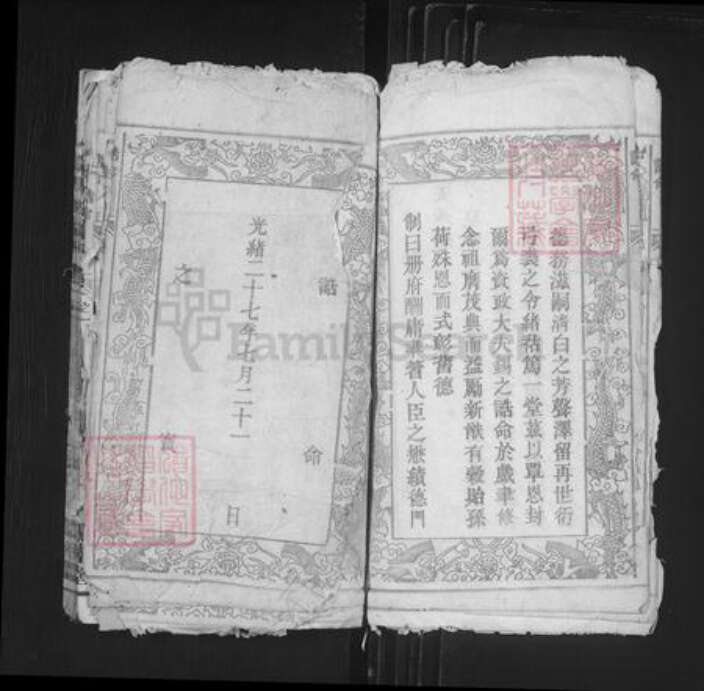 德務滋嗣清白之芳聲澤留再世衍
弓裘之令緒祜篤一堂茲以覃恩封
爾為資政大夫錫之誥命於戲聿修
念祖膺茂典而益勵新猷有穀貽孫
荷殊恩而式彰舊德
制曰冊府酬庸聿著人臣之懋績德門
誥
命
光緒二十七年七月二十一
日
之
寶
FamilySearch